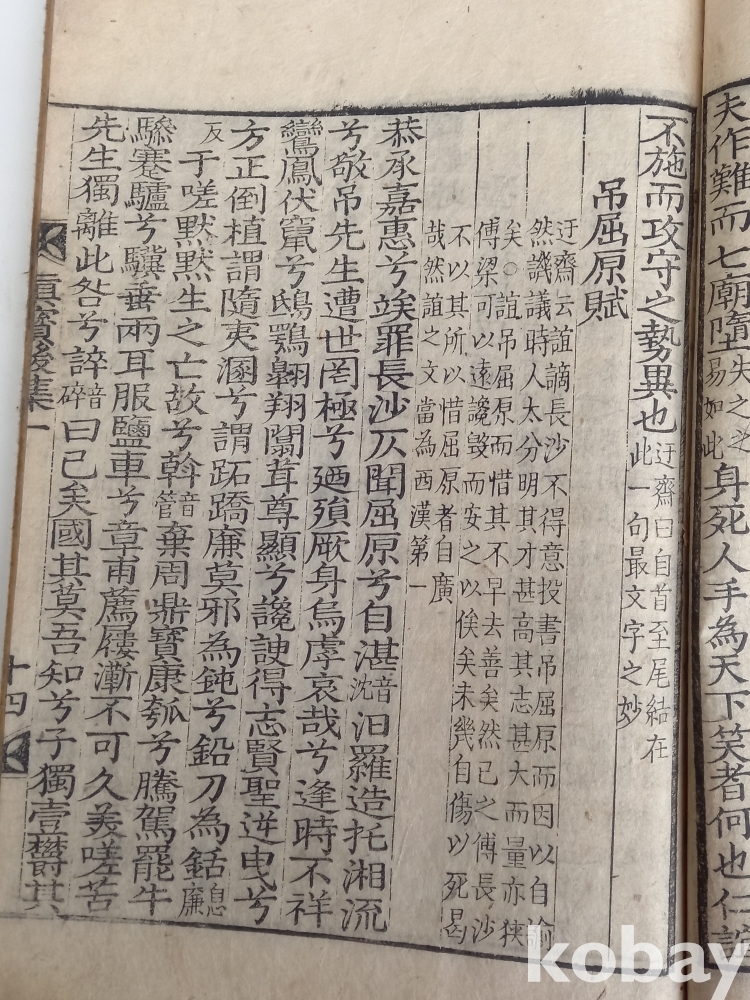 夫作難而七廟隳失之之易如此身死人手為天下笑者何也仁誼
不施而攻守之勢異也迂齋曰自首至尾結在
此一句最文字之妙
吊屈原賦
迂齋云誼謫長沙不得意投書吊屈原而因以自諭
然譏議時人太分明其才甚高其志甚大而量亦狹
矣○誼吊屈原而惜其不早去善矣然已之傅長沙
傅梁可以遠讒毀而安之以俟矣未幾自傷以死曷
不以其所以惜屈原者自廣
哉然誼之文當為西漢第一
恭承嘉惠兮竢罪長沙仄聞屈原兮自湛音沈汨羅造托湘流
兮敬吊先生遭世罔極兮廼殞厥身烏虖哀哉兮逢時不祥
鸞鳳伏竄兮鴟鶚翱翔闒茸尊顯兮讒諛得志賢聖逆曳兮
方正倒植謂隨夷溷兮謂跖蹻廉莫邪為鈍兮鉛刀為銛息廉
反于嗟默默生之亡故兮斡音管棄周鼎寶康瓠兮騰駕罷牛
驂蹇驢兮驥垂兩耳服鹽車兮章甫薦屨漸不可久兮嗟苦
先生獨離此咎兮誶音碎曰已矣國其莫吾知兮子獨壹鬱其
眞寶後集一
十四
kobay